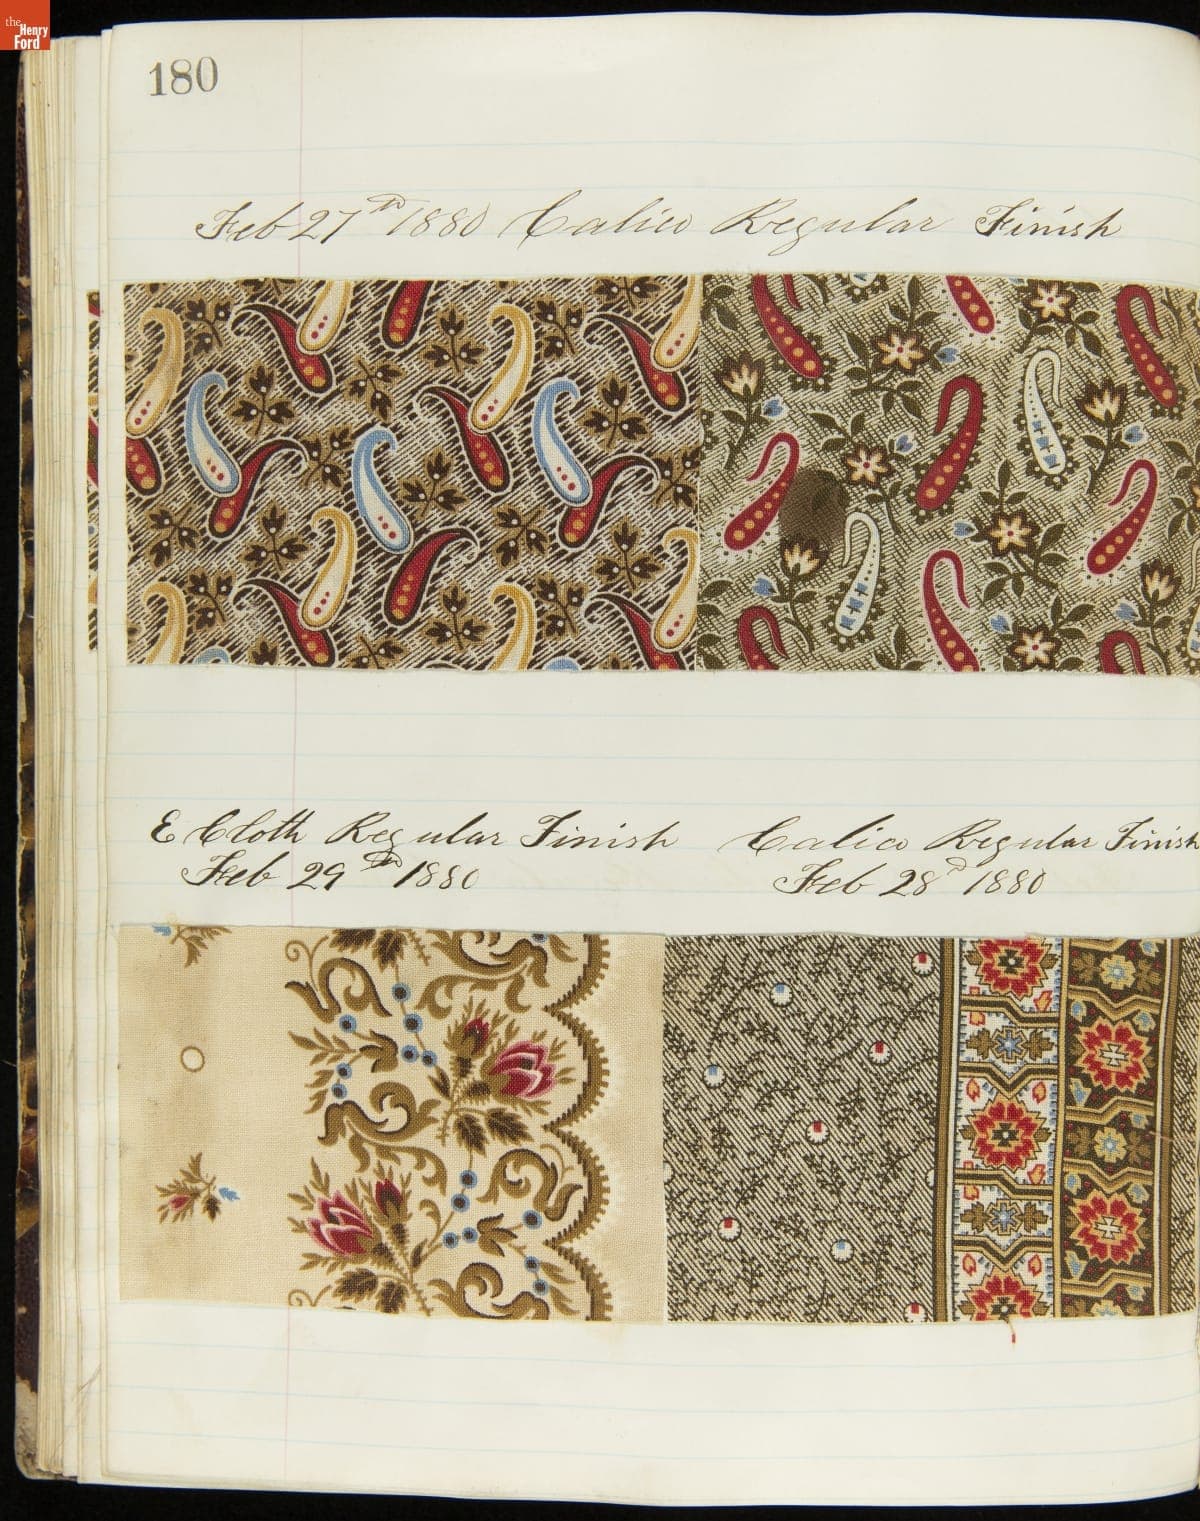 the
Henry
Ford
180
Feb 27th 1880 Calico Regular Finish
E Cloth Regular Finish
Feb 29th 1880
Calico Regular Finish
Feb 28d 1880